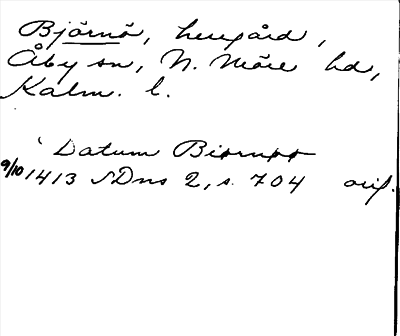 Björnö, herrgård,
Åby sn, N. Möre hd,
Kalm. l.
Datum Biornøø
9/10 1413 SDns 2, s. 704 orig.